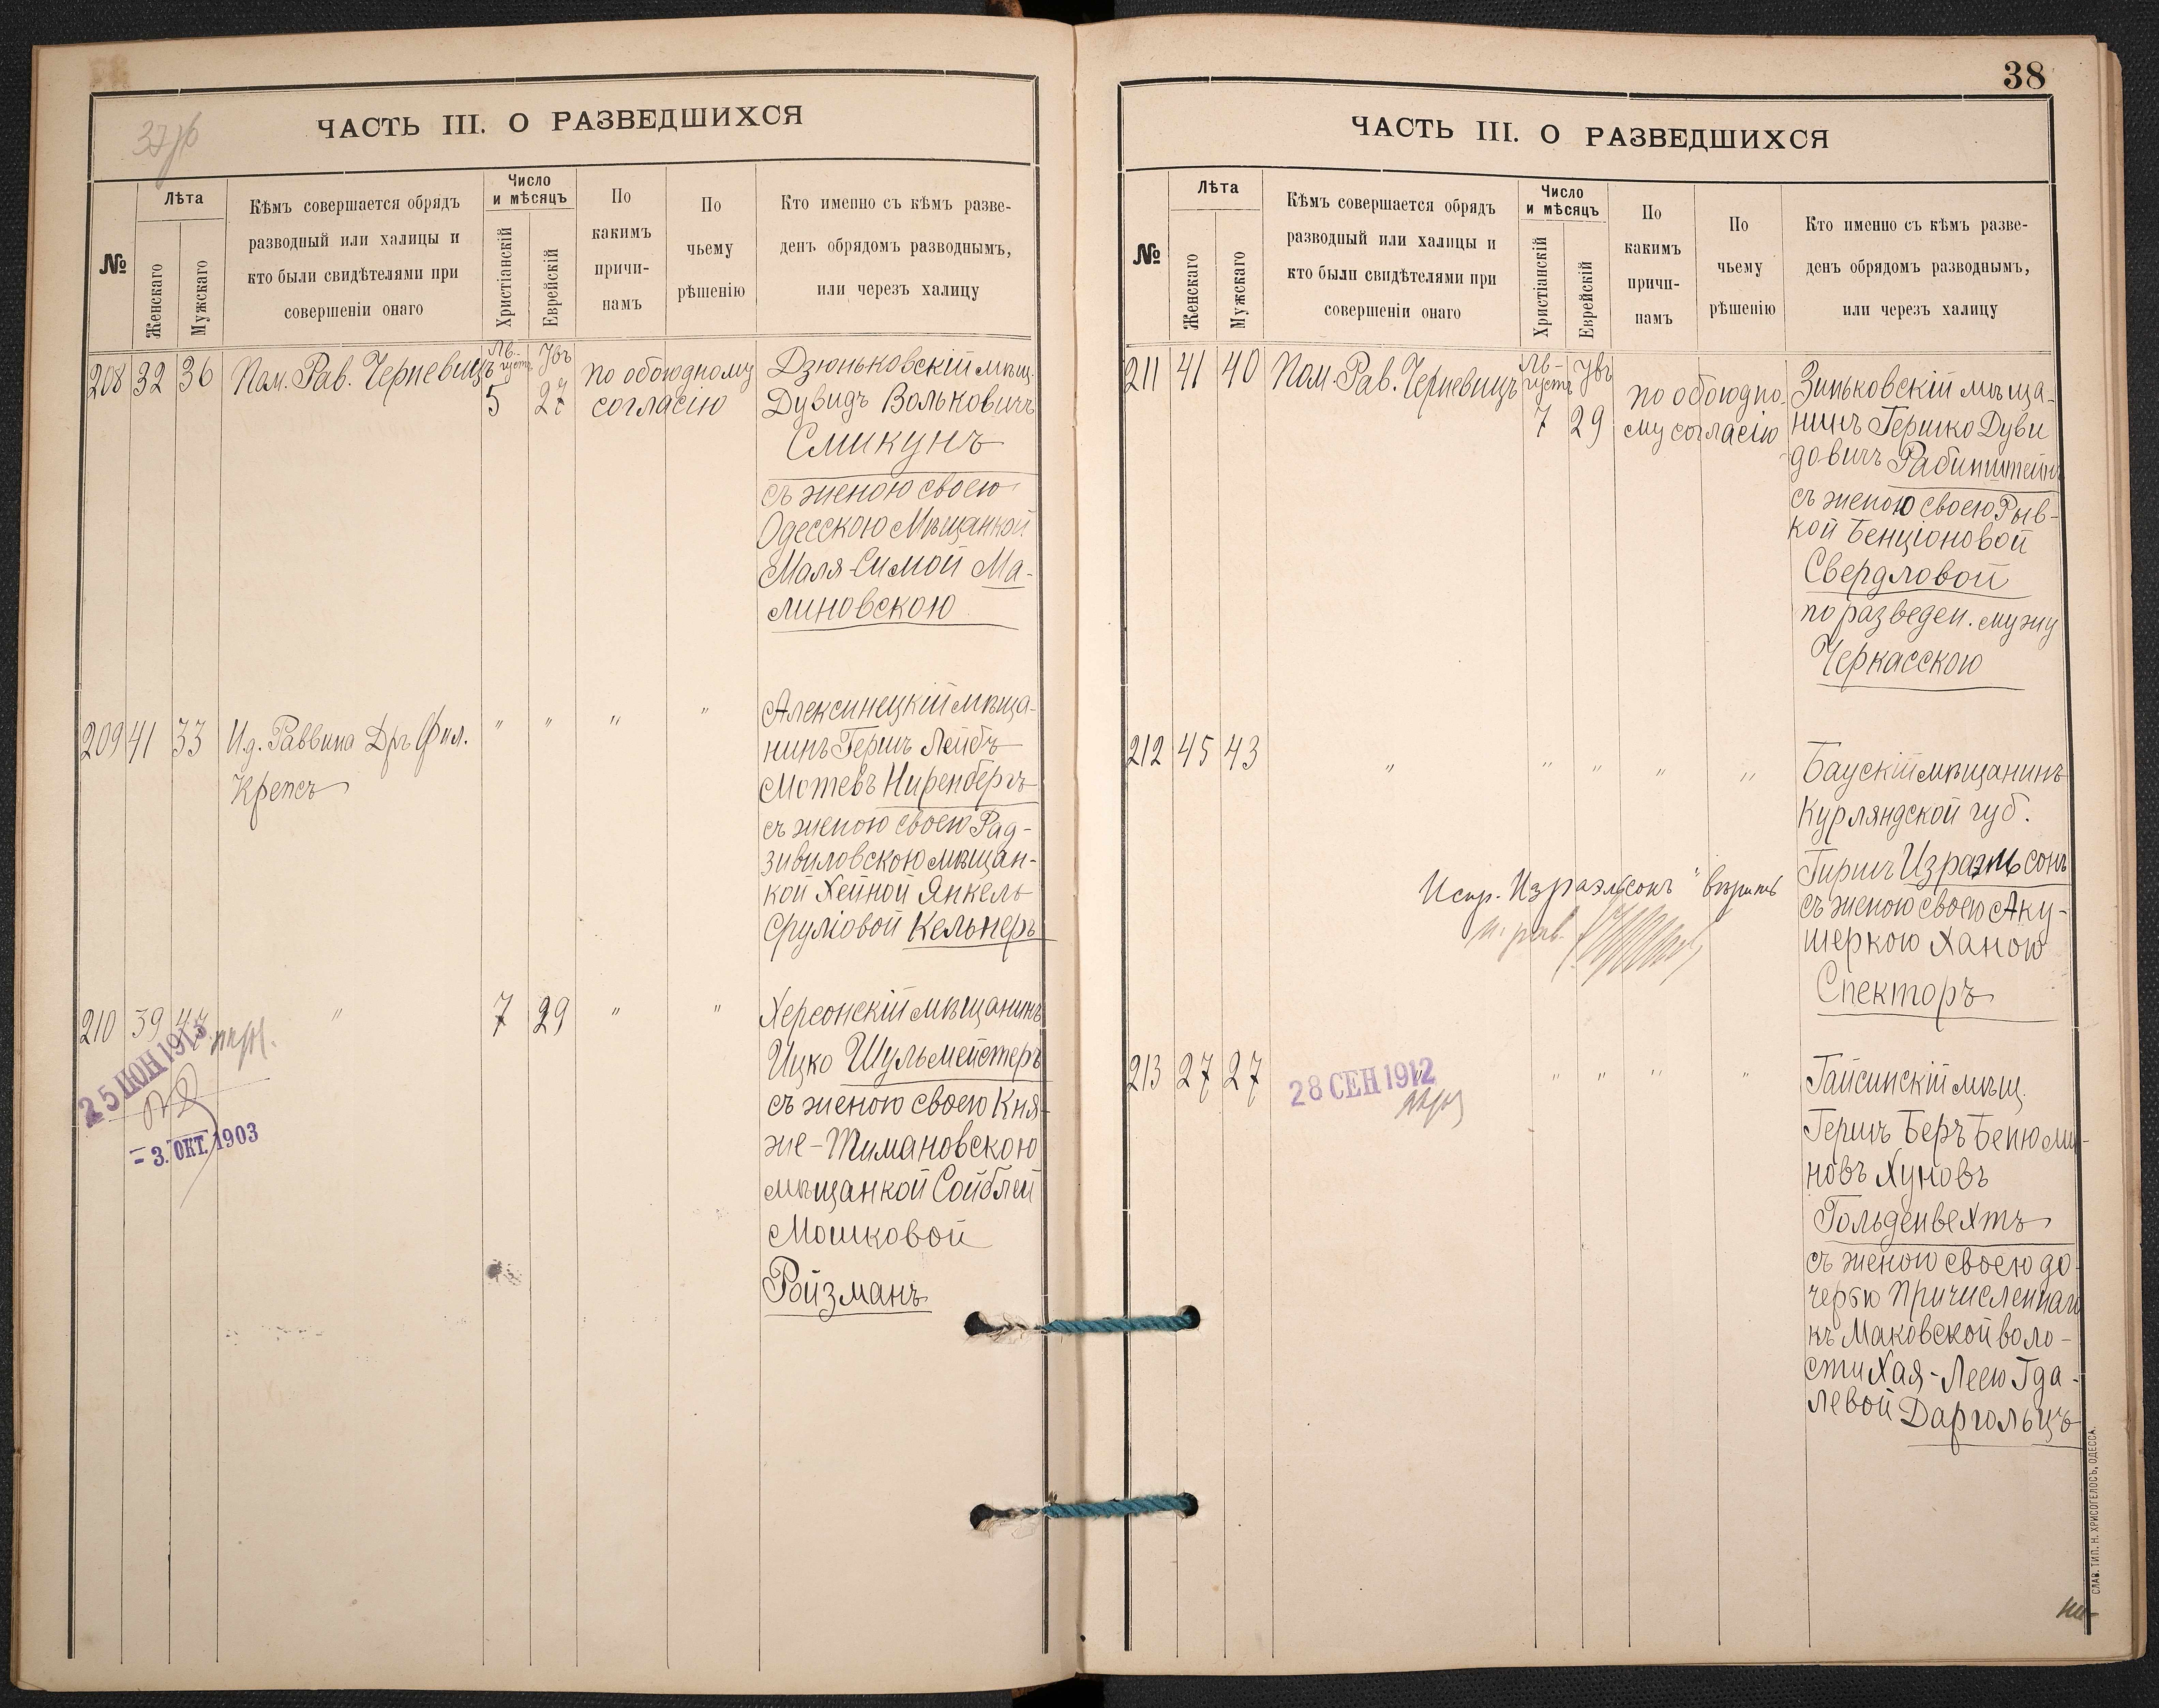 ЧАСТЬ III. О РАЗВЕДШИХСЯ
№
Лѣта
Женскаго
Мужскаго
Кѣмъ совершается обрядъ
разводный или халицы и
кто были свидѣтелями при
совершеніи онаго
Число
и мѣсяцъ
Христіанскій
Еврейскій
По
какимъ
причи-
намъ
По
чьему
рѣшенію
Кто именно съ кѣмъ разве-
денъ обрядомъ разводнымъ,
или черезъ халицу
208 32 36 Пом. Рав. Черневицъ
Ав-
густъ
5
Увъ
27
по обоюдному
согласію
Дзюньковскій мѣщ.
Дувидъ Вольковичъ
Смикунъ
съ женою своею
Одесскою Мѣщанкой
Маля-Симой Ма-
линовскою
209 41 33 И.д. Раввина Дръ Фил.
Крепсъ
" " " "
Алексинецкій мѣща-
нинъ Гершъ Лейбъ
Мотевъ Ниренбергъ
съ женою своею Рад-
зивиловскою мѣщан-
кой Хейной Янкель
Сруліовой Кельнеръ
210 39 " 7 29 " "
25 ИЮН 1913
- 3. ОКТ. 1903
Херсонскій мѣщанинъ
Ицко Шульмейстеръ
съ женою своею Кня-
же-Тимановскою
мѣщанкой Сойблей
Мошковой
Ройзманъ
38
ЧАСТЬ III. О РАЗВЕДШИХСЯ
№
Лѣта
Женскаго
Мужскаго
Кѣмъ совершается обрядъ
разводный или халицы и
кто были свидѣтелями при
совершеніи онаго
Число
и мѣсяцъ
Христіанскій
Еврейскій
По
какимъ
причи-
намъ
По
чьему
рѣшенію
Кто именно съ кѣмъ разве-
денъ обрядомъ разводнымъ,
или черезъ халицу
211 41 40 Пом. Рав. Черневицъ
Ав-
густъ
7
Увъ
29
по обоюдно-
му согласію
Зиньковскій мѣща-
нинъ Гершко Дуви
довичъ Рабинштейнъ
съ женою своею Рыв-
кой Бенціоновой
Свердловой
по разведен. мужу
Черкасскою
212 45 43 " " " " "
Баускій мѣщанинъ
Курляндской губ.
Гиршъ Израэльсонъ
съ женою своею Аку-
шеркою Ханою
Спекторъ
Испр. "Израэльсонъ" вѣрить
213 27 27 " " " " "
28 СЕН 1912
Гайсинскій мѣщ.
Гершъ Беръ Беньюми-
новъ Хуновъ
Гольденвехтъ
съ женою своею до-
черью Причисленнаго
къ Маковской воло-
сти Хая-Лею Гда-
левой Даргольцъ
СЛАВ. ТИП. Н. ХРИСОГЕЛОСЪ, ОДЕССА.